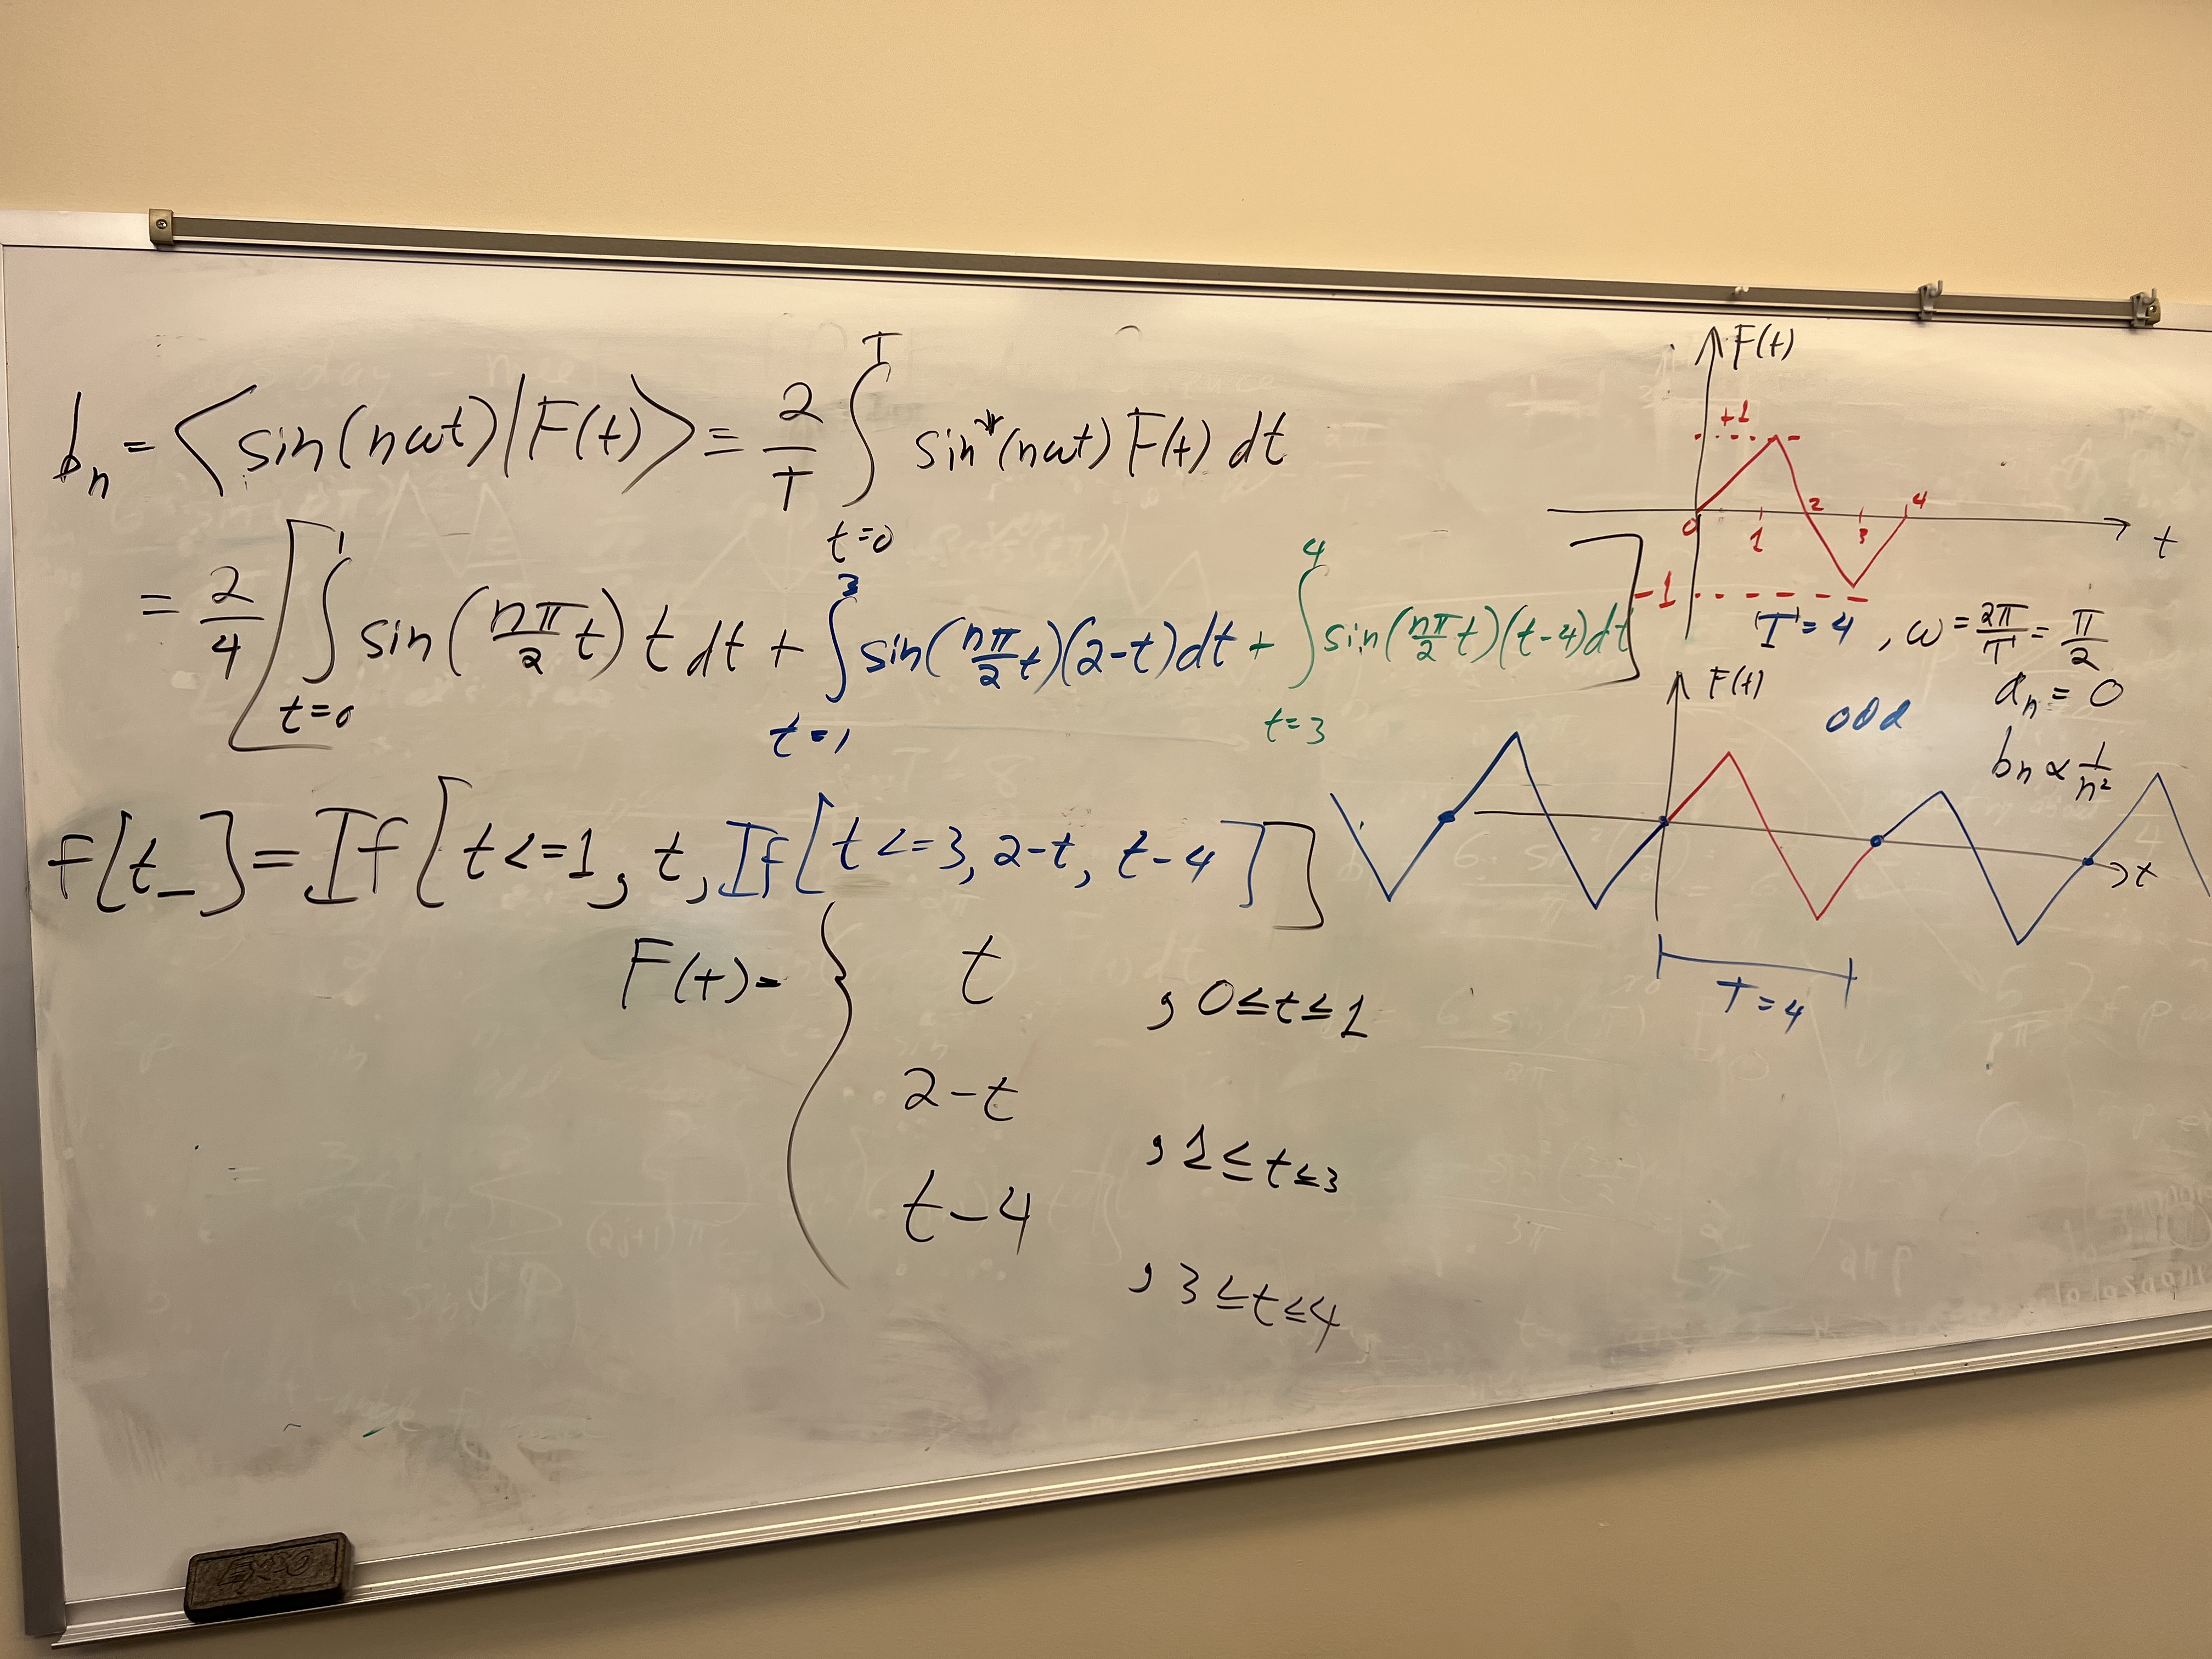 bₙ = ⟨sin(nωt)|F(t)⟩ = 2/T ∫_{t=0}^{T} sin*(nωt) F(t) dt
= 2/4 [∫_{t=0}^{1} sin(nπ/2 t) t dt + ∫_{t=1}^{3} sin(nπ/2 t)(2-t)dt + ∫_{t=3}^{4} sin(nπ/2 t)(t-4)dt]
F[t_] = If[t<=1, t, If[t<=3, 2-t, t-4]]
F(t) = {
t , 0≤t≤1
2-t , 1≤t≤3
t-4 , 3≤t≤4
F(t)
+1
0 1 2 3 4
t
-1
T=4, ω = 2π/T = π/2
F(t)
odd
aₙ = 0
bₙ ∝ 1/n²
t
T=4
EXPO